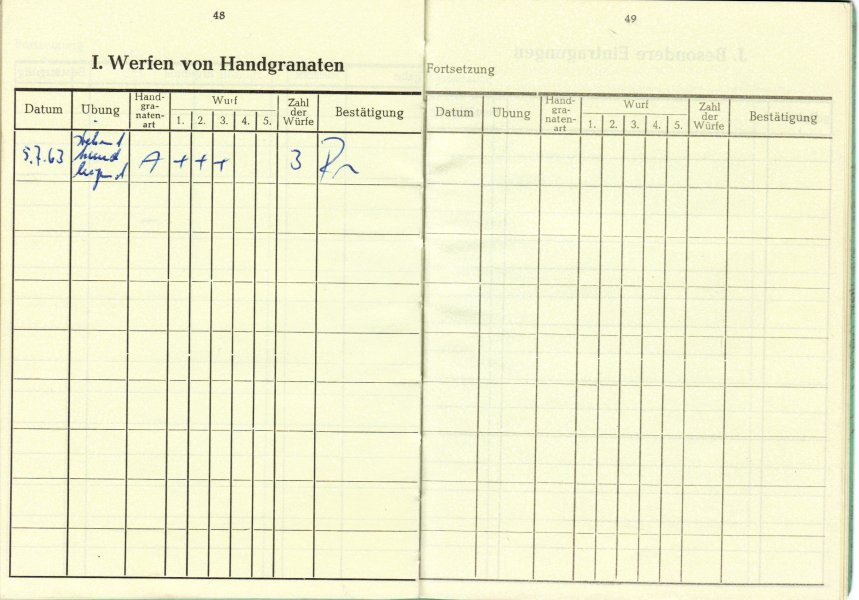 48
I. Werfen von Handgranaten
Datum Übung Hand-gra-naten-art Wurf 1. 2. 3. 4. 5. Zahl der Würfe Bestätigung
5.7.63 stehend A + + + 3
knieend
liegend
49
Fortsetzung
Datum Übung Hand-gra-naten-art Wurf 1. 2. 3. 4. 5. Zahl der Würfe Bestätigung